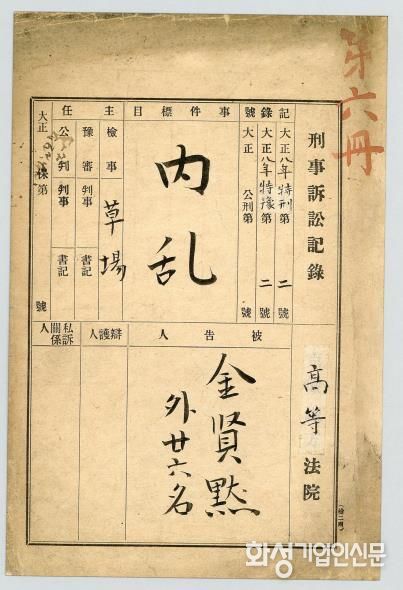 第六冊
刑事訴訟記錄
高等法院
記錄號
大正八年特刑第二號
大正八年特豫第二號
大正 公刑第 號
事件標目
内乱
主任
檢事 草場
豫審判事 書記
公判判事 書記
大正 保第 號
被告人
金賢黙
外廿六名
辯護人
私訴關係人
화성기업인신문